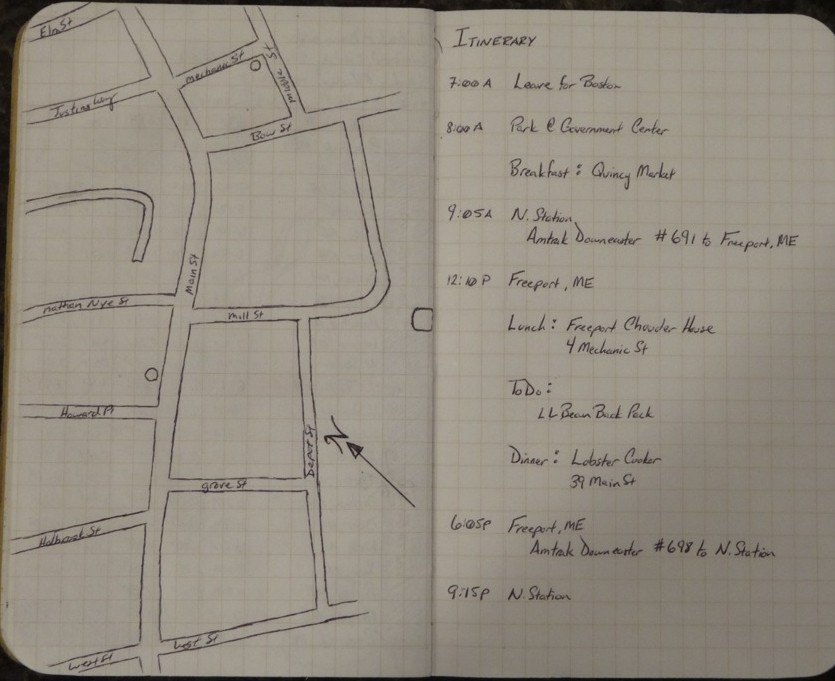 Elm St
Mechanic St
Middle St
Justins Way
Bow St
Main St
Nathan Nye St
Mill St
Howard Pl
Depot St
N
Grove St
Holbrook St
West St
West St
ITINERARY
7:00 A Leave for Boston
8:00 A Park @ Government Center
Breakfast: Quincy Market
9:05 A N. Station
Amtrak Downeaster #691 to Freeport, ME
12:10 P Freeport, ME
Lunch: Freeport Chowder House
4 Mechanic St
To Do:
LL Bean Back Pack
Dinner: Lobster Cooker
39 Main St
6:05P Freeport, ME
Amtrak Downeaster #698 to N. Station
9:15P N. Station